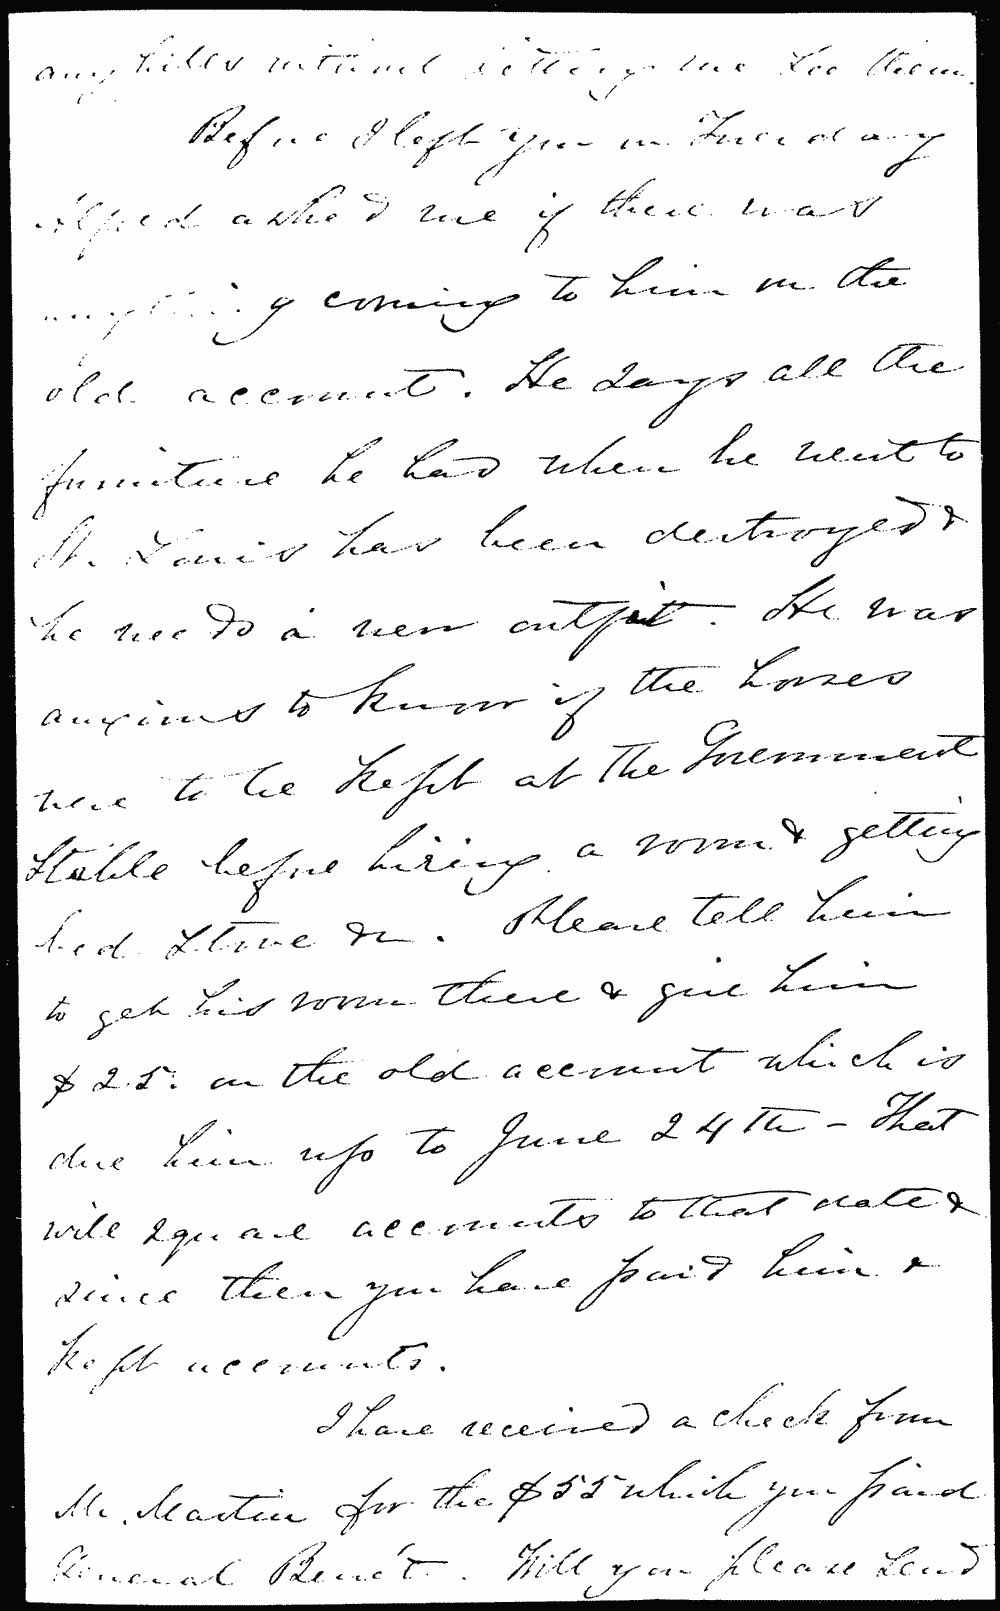 any bills without letting me see them.
Before I left you on Tuesday
Alfred asked me if there was
anything coming to him on the
old account. He says all the
furniture he had when he went to
St. Louis has been destroyed &
he needs a new outfit. He was
anxious to know if the horses
were to be kept at the Government
Stable before hiring a room & getting
bed stove &c. Please tell him
to get his room there & give him
$25. on the old account which is
due him up to June 24th – That
will square accounts to that date &
since then you have paid him &
kept accounts.
I have received a check from
Mr. Martin for the $55 which you paid
General Benét. Will you please send